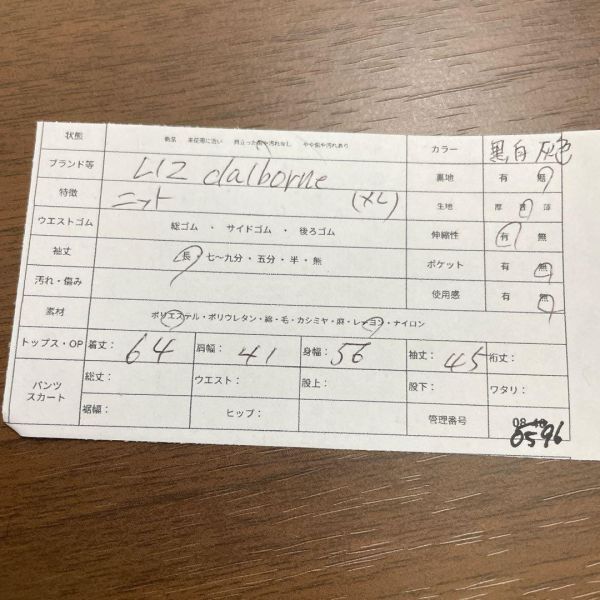 状態 新品 未使用に近い 目立った傷や汚れなし やや傷や汚れあり カラー 黒白灰色
ブランド等 LIZ dalborne 裏地 有 無
特徴 ニット (XL) 生地 厚 普 薄
ウエストゴム 総ゴム ・ サイドゴム ・ 後ろゴム 伸縮性 有 無
袖丈 長・七〜九分・五分・半・無 ポケット 有 無
汚れ・傷み 使用感 有 無
素材 ポリエステル・ポリウレタン・綿・毛・カシミヤ・麻・レーヨン・ナイロン
トップス・OP 着丈: 64 肩幅: 41 身幅: 56 袖丈: 45 裄丈:
パンツ スカート 総丈: ウエスト: 股上: 股下: ワタリ:
裾幅: ヒップ: 管理番号 0596